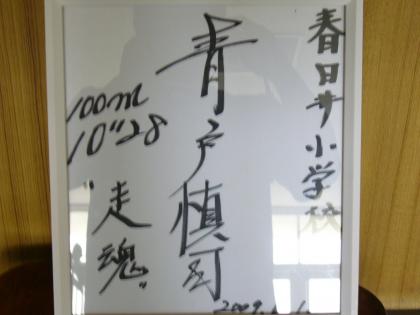 春日井小学校
青戸慎司
100m
10"28
"走魂"
2009.